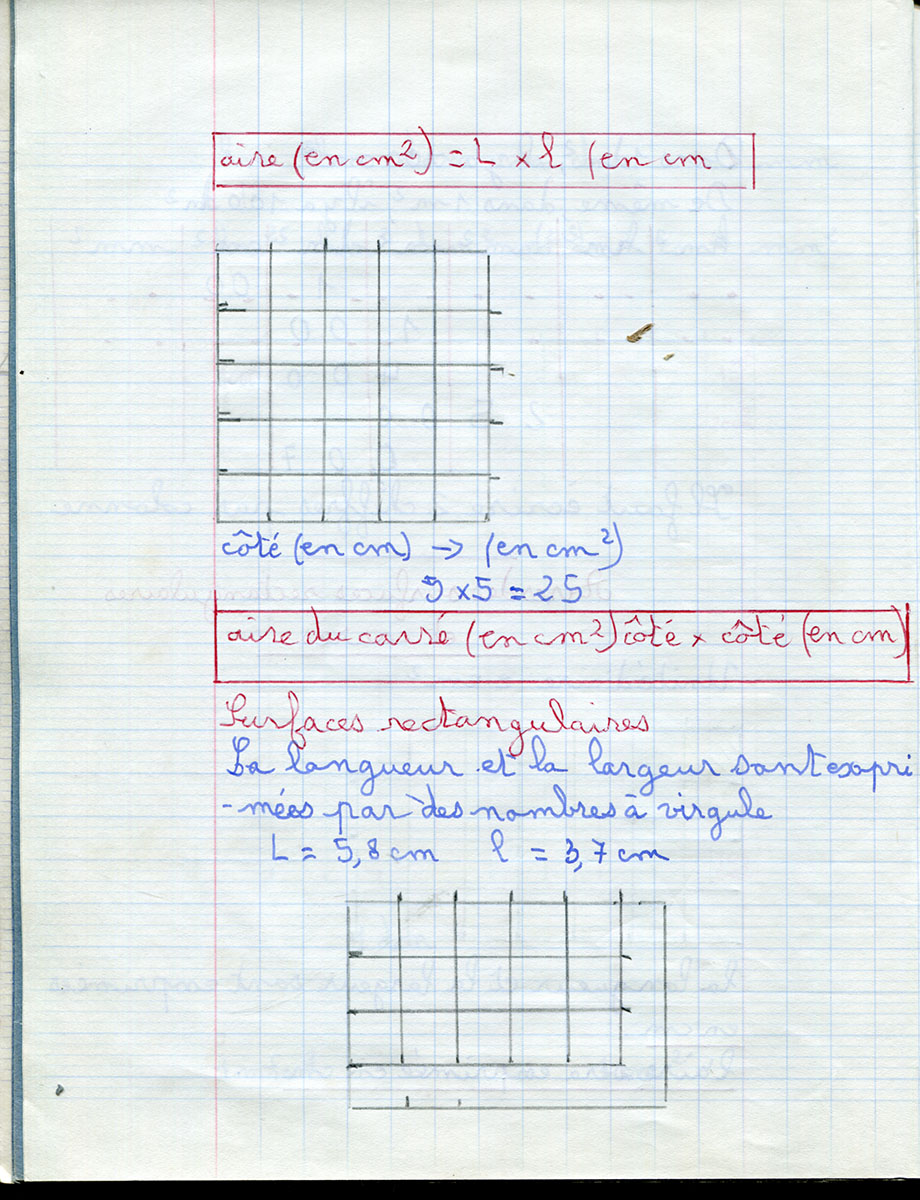 aire (en cm²) = L × l (en cm
côté (en cm) → (en cm²)
5 × 5 = 25
aire du carré (en cm²) côté × côté (en cm)
Surfaces rectangulaires
La longueur et la largeur sont expri
-mées par des nombres à virgule
L = 5,8 cm l = 3,7 cm